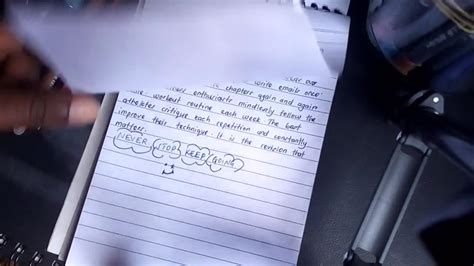 write emails once
chapter again and again
enthusiasts mindlessly follow the
workout routine each week. The best
atheletes critique each repetition and constantly
improve their technique. It is the revision that
matters.
NEVER STOP KEEP GOING